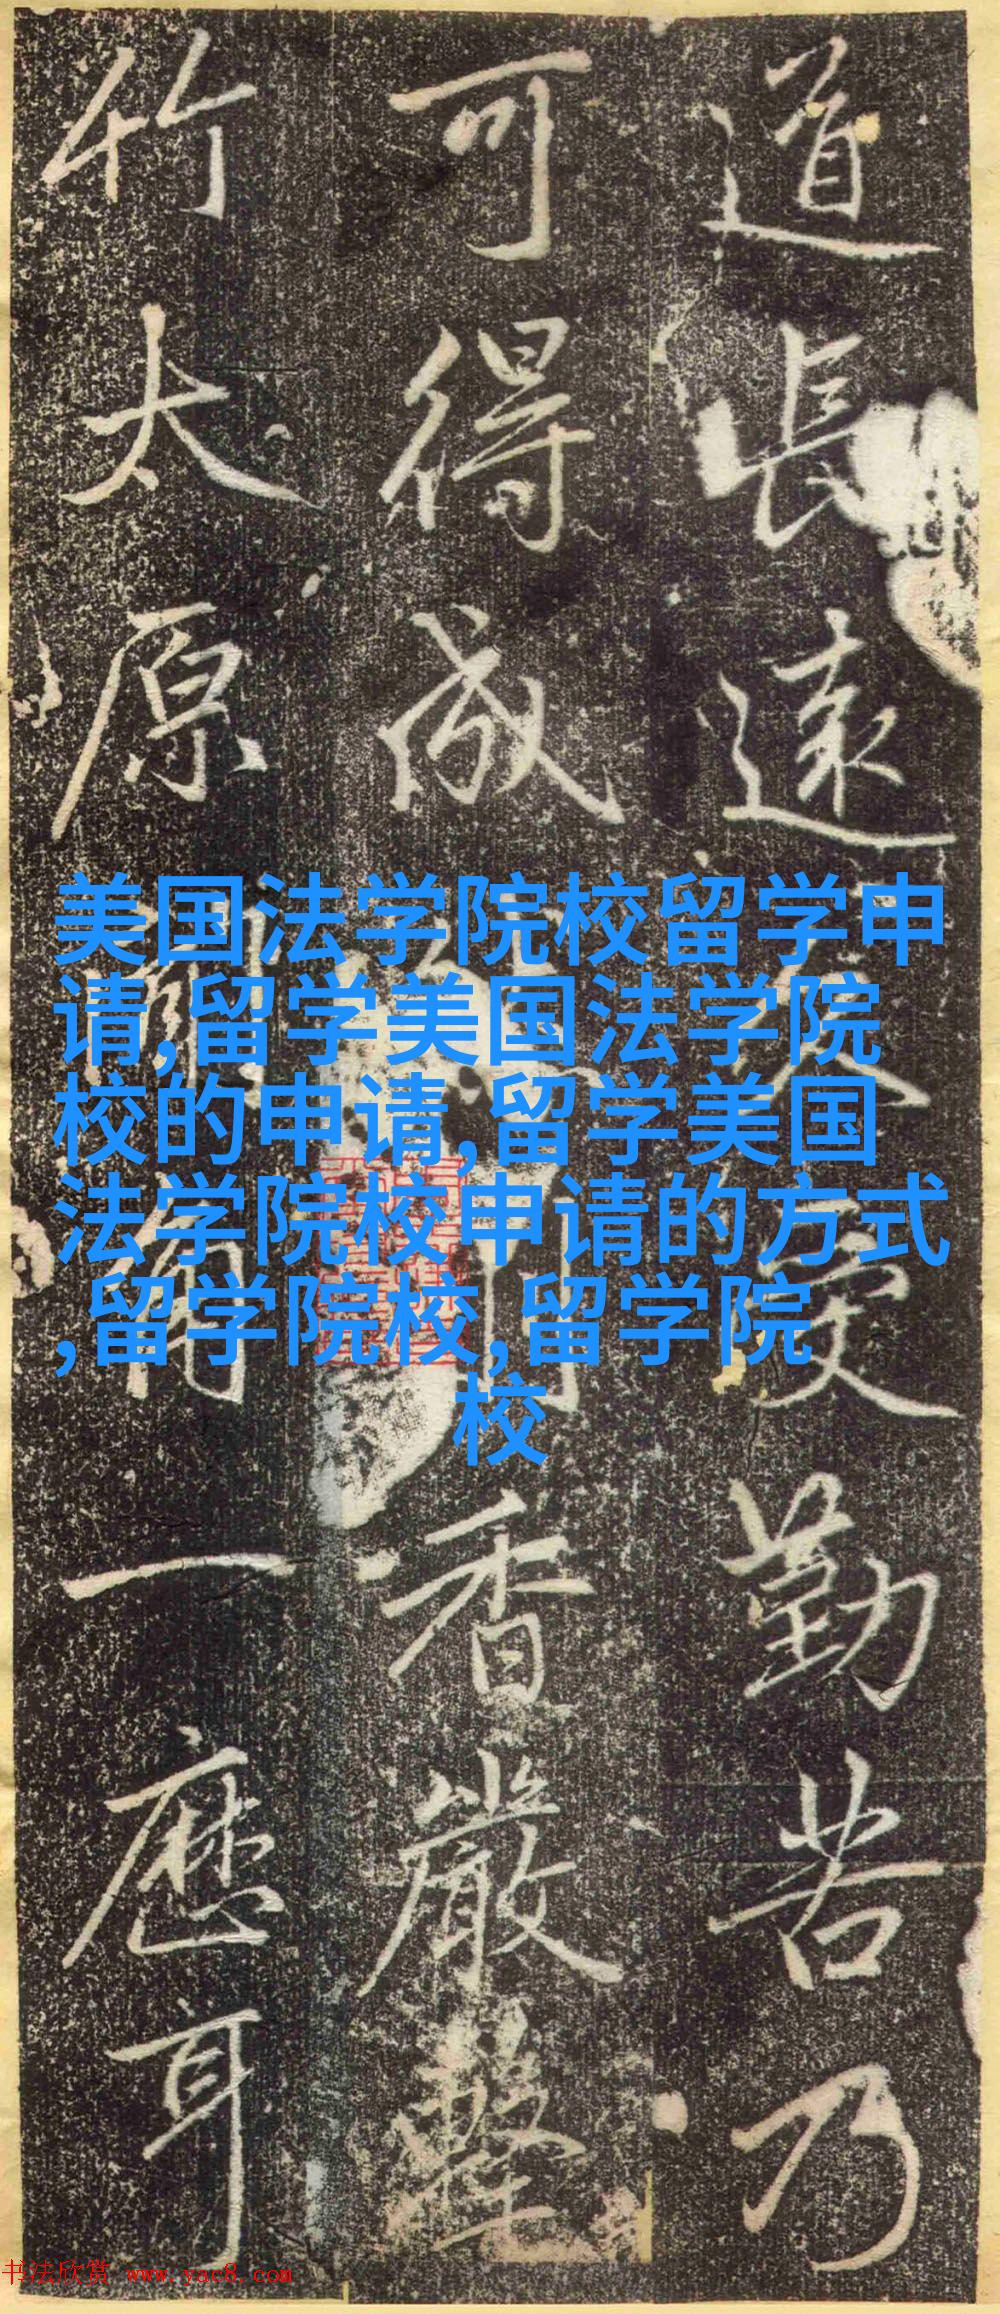 道長遠久受勤苦乃
可得成香嚴擊
竹太原聞角一應耳
美国法学院校留学申
请,留学美国法学院
校的申请,留学美国
法学院校申请的方式
,留学院校,留学院
校
书法欣赏 www.yac8.com